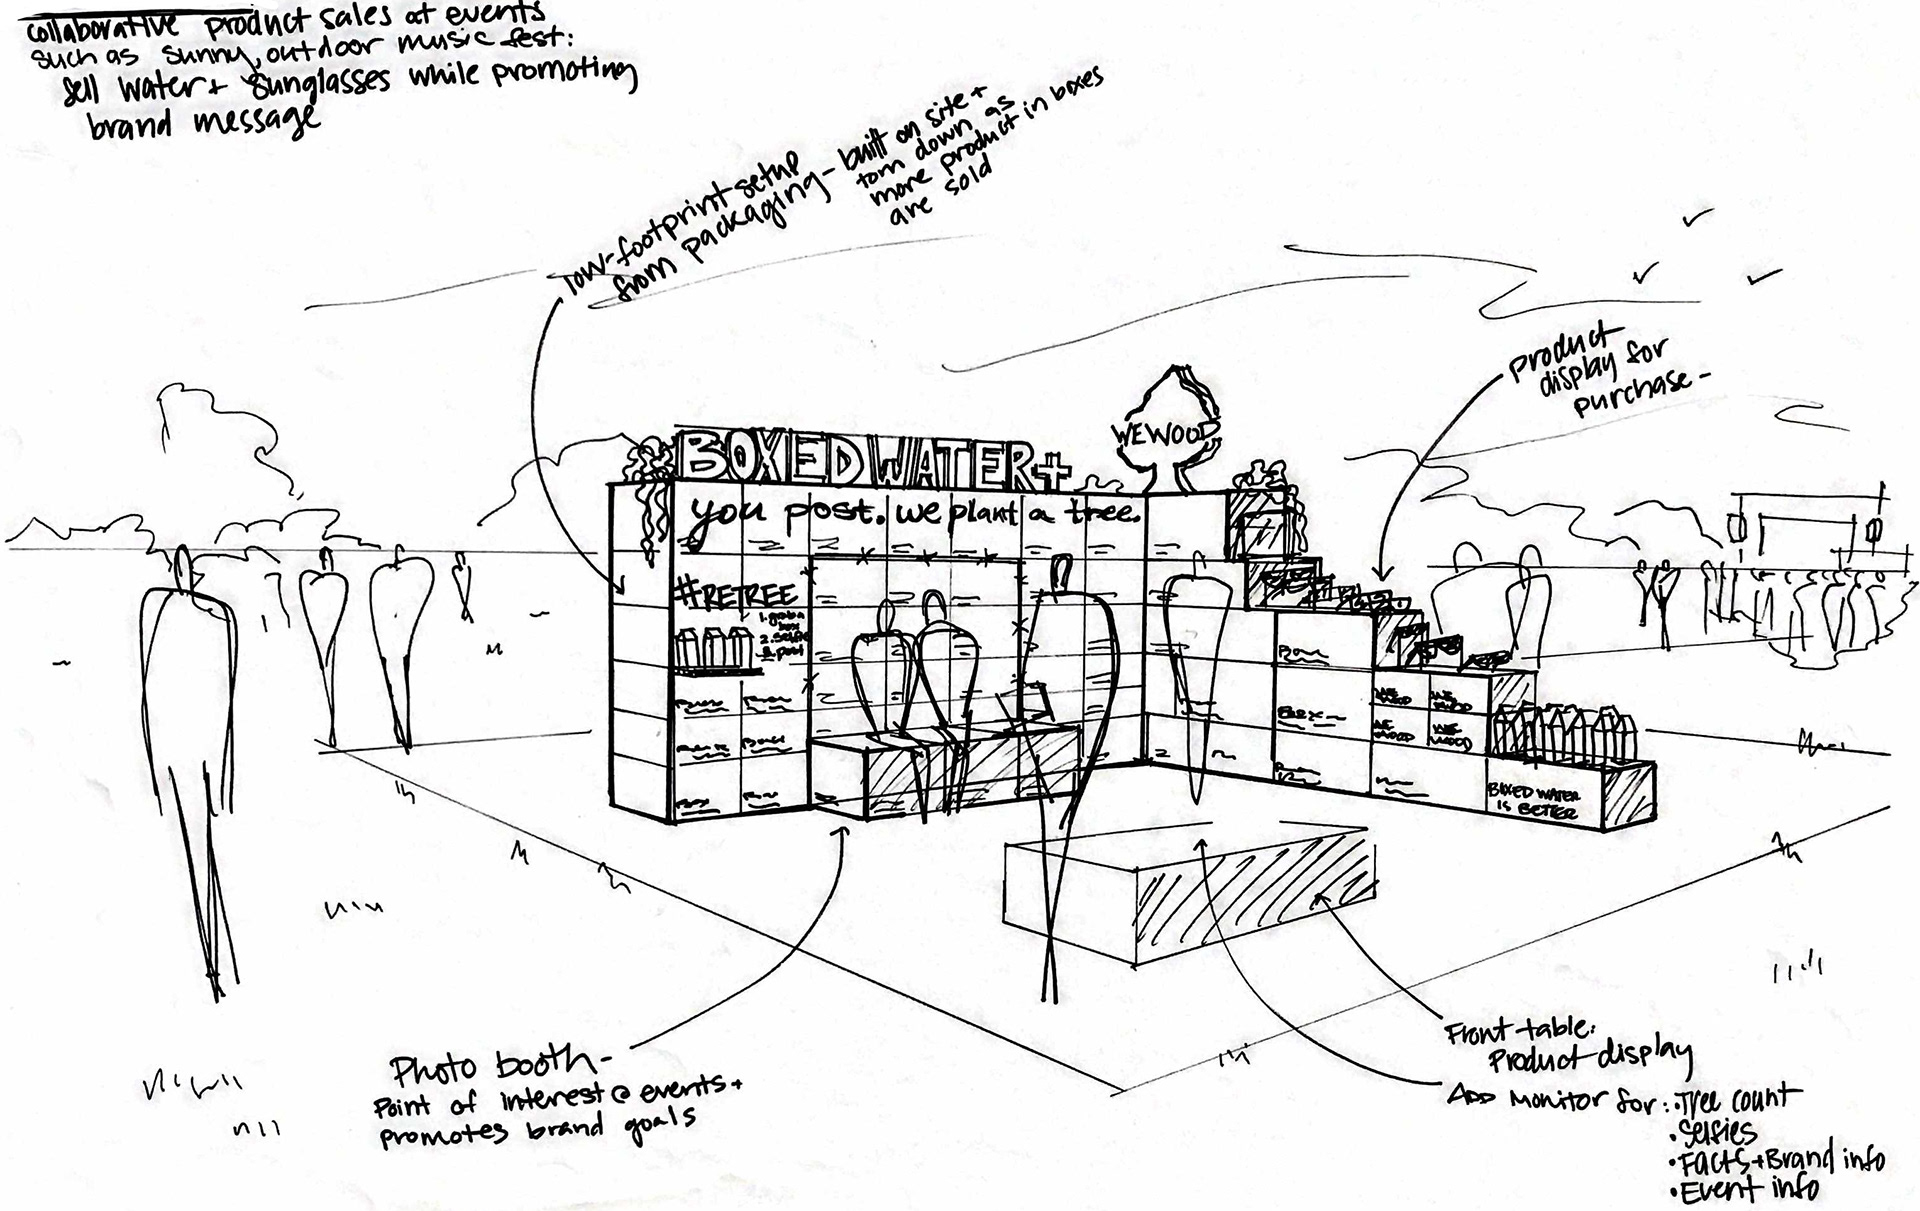 collaborative product sales at events
such as sunny, outdoor music fest:
sell water + sunglasses while promoting
brand message
low-footprint setup
from packaging - built on site +
torn down as
more product in boxes
are sold
product
display for
purchase -
BOXED WATER +
WEWOOD
you post. we plant a tree.
#RETREE
1. grab a
box
2. selfie
3. post
WE
WOOD
WE
WOOD
WE
WOOD
WE
WOOD
BOXED WATER
IS BETTER
Photo booth -
Point of interest @ events +
promotes brand goals
Front table:
Product display
ADD monitor for: • Tree count
• Selfies
• Facts + Brand info
• Event info